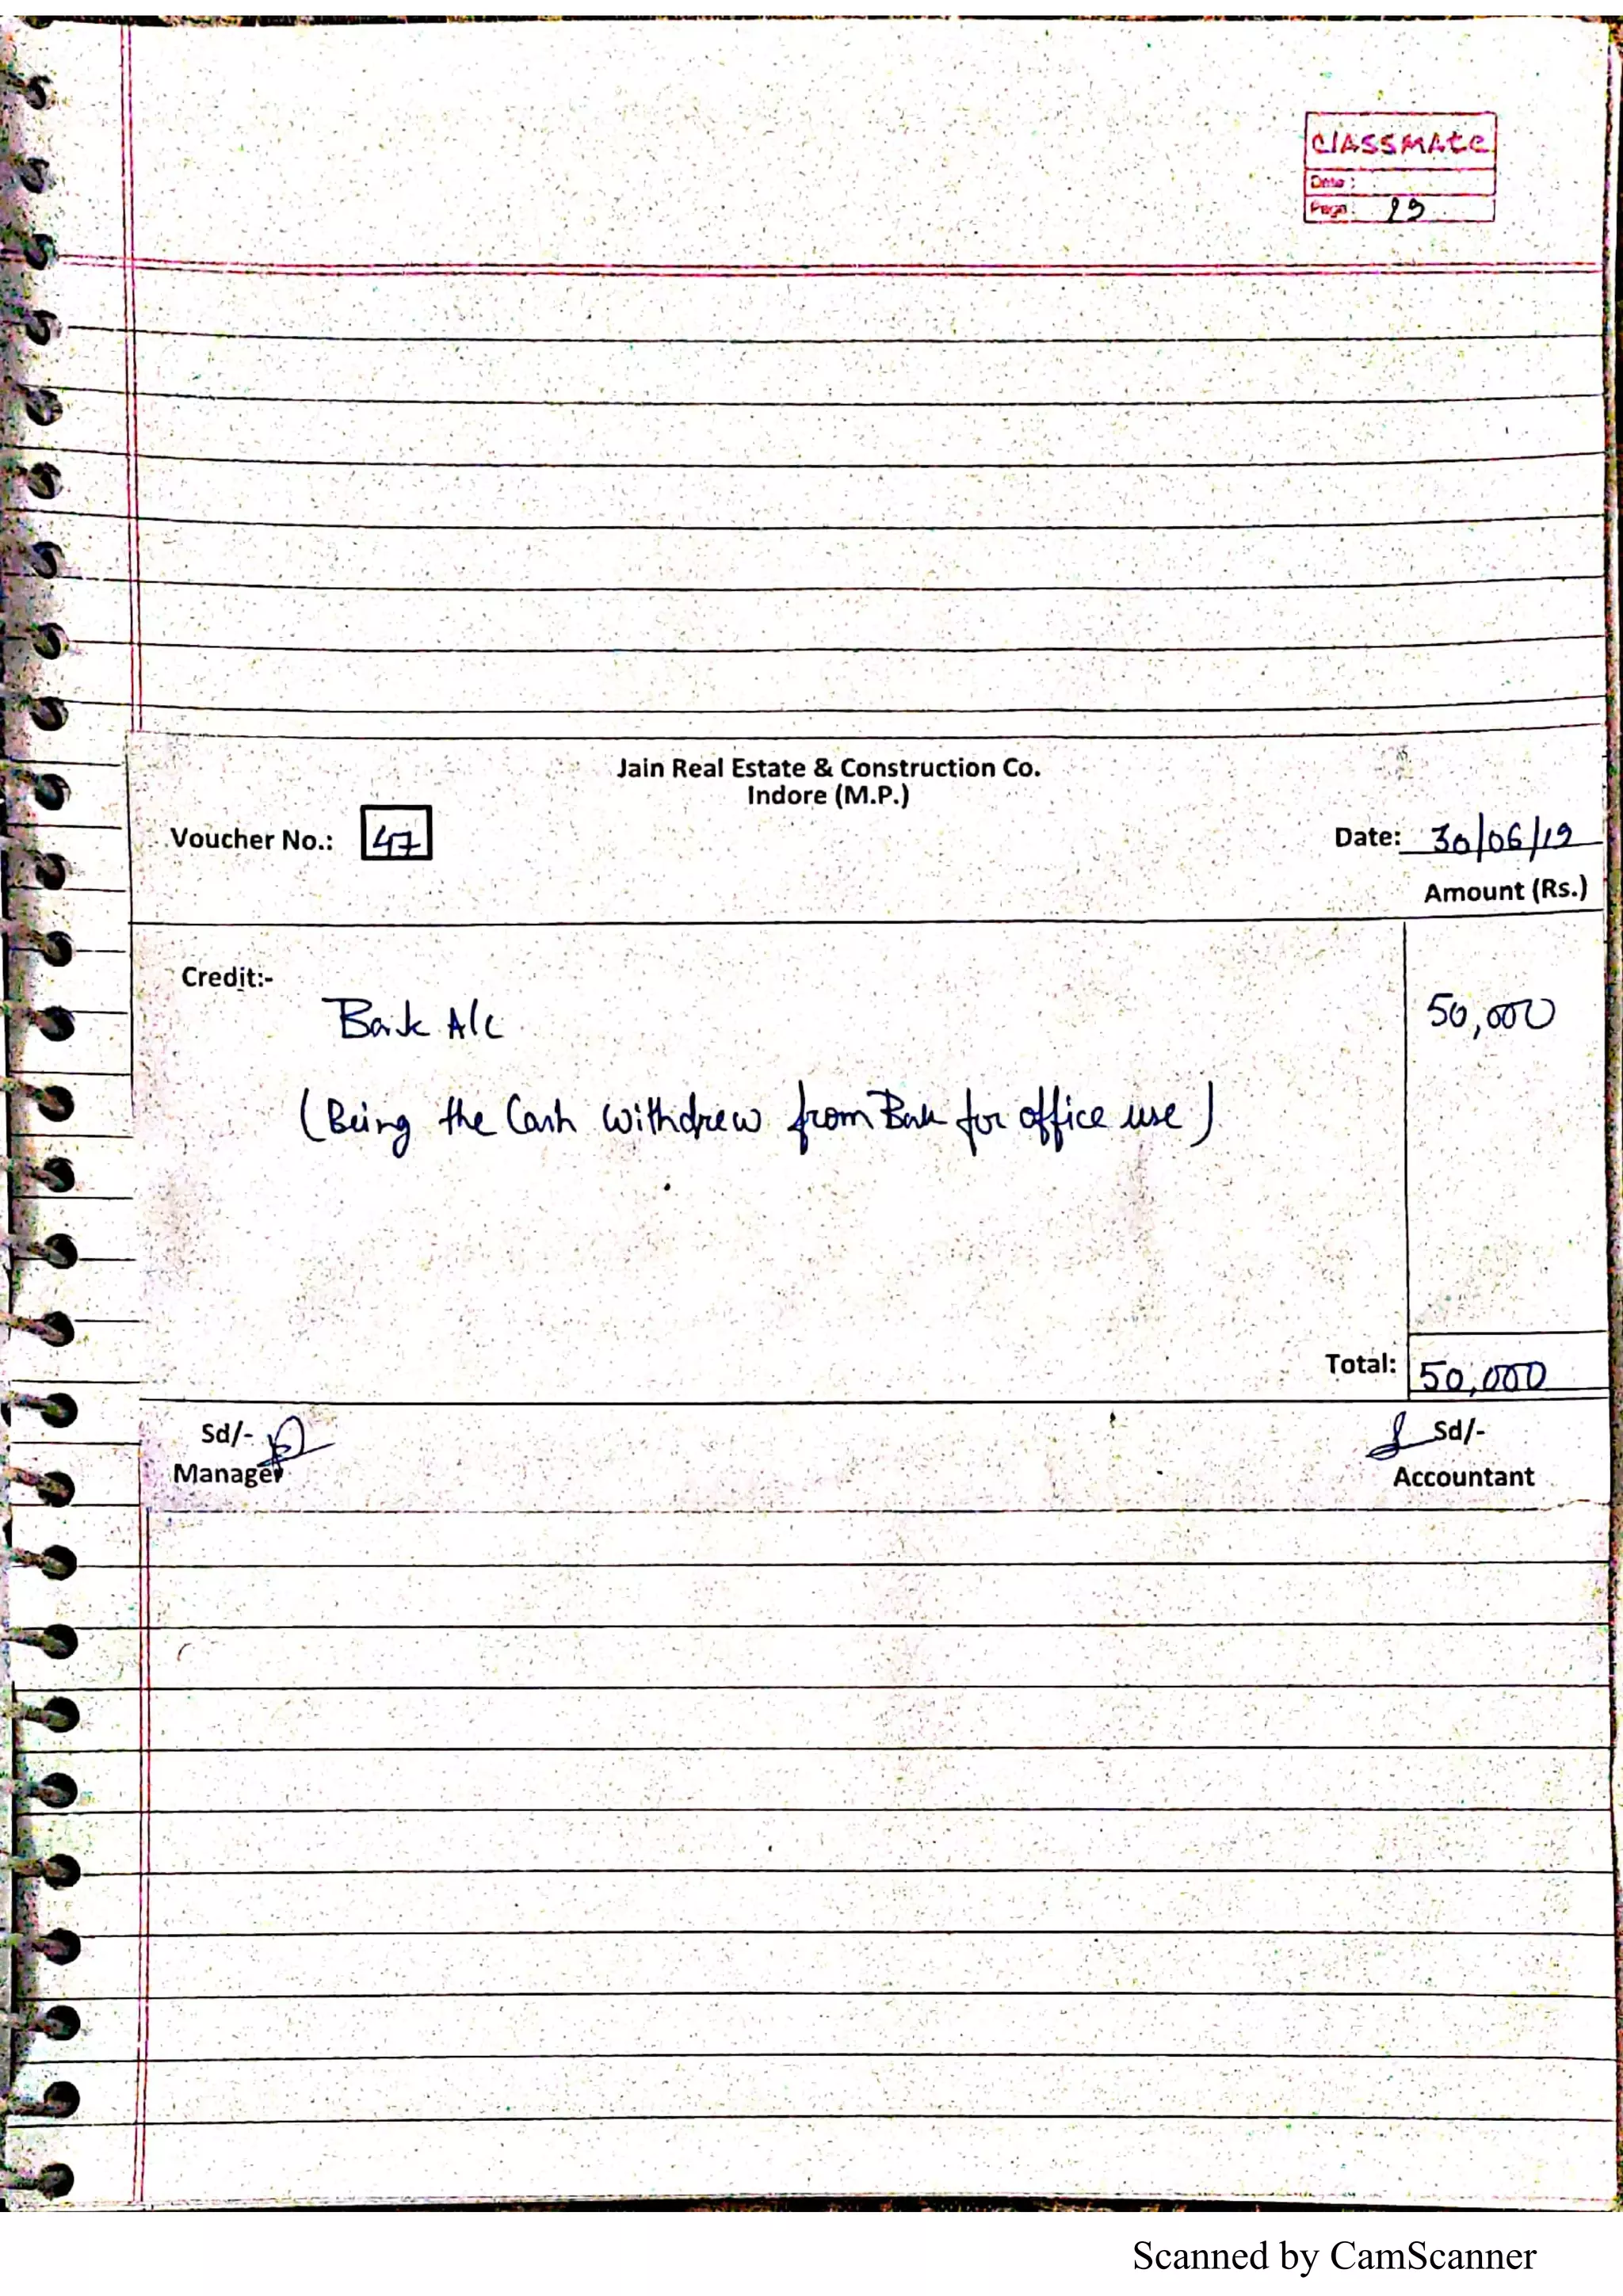 classmate
Date :
Page :
Jain Real Estate & Construction Co.
Indore (M.P.)
Voucher No.: 47
Date: 30/06/19
Amount (Rs.)
Credit:-
Bank A/c 50,000
(Being the Cash withdrew from Bank for office use)
Total: 50,000
Sd/- Sd/-
Manager Accountant
Scanned by CamScanner